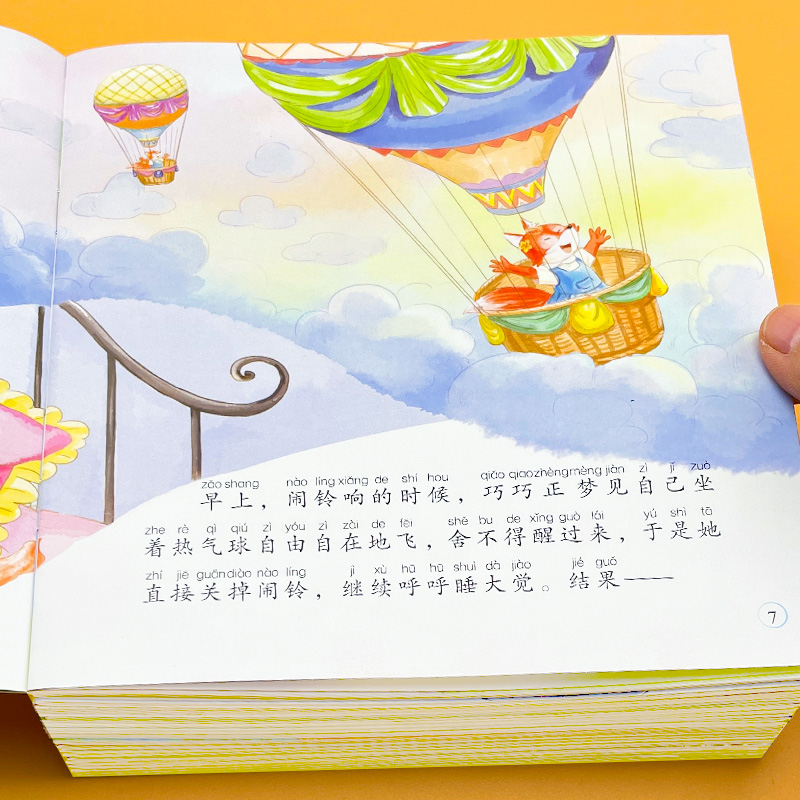 zǎo shang nào líng xiǎng de shí hou qiǎo qiao zhèng mèng jiàn zì jǐ zuò
早上，闹铃响的时候，巧巧正梦见自己坐
zhe rè qì qiú zì yóu zì zài de fēi shě bu de xǐng guò lái yú shì tā
着热气球自由自在地飞，舍不得醒过来，于是她
zhí jiē guān diào nào líng jì xù hū hū shuì dà jiào jié guǒ
直接关掉闹铃，继续呼呼睡大觉。结果——
7